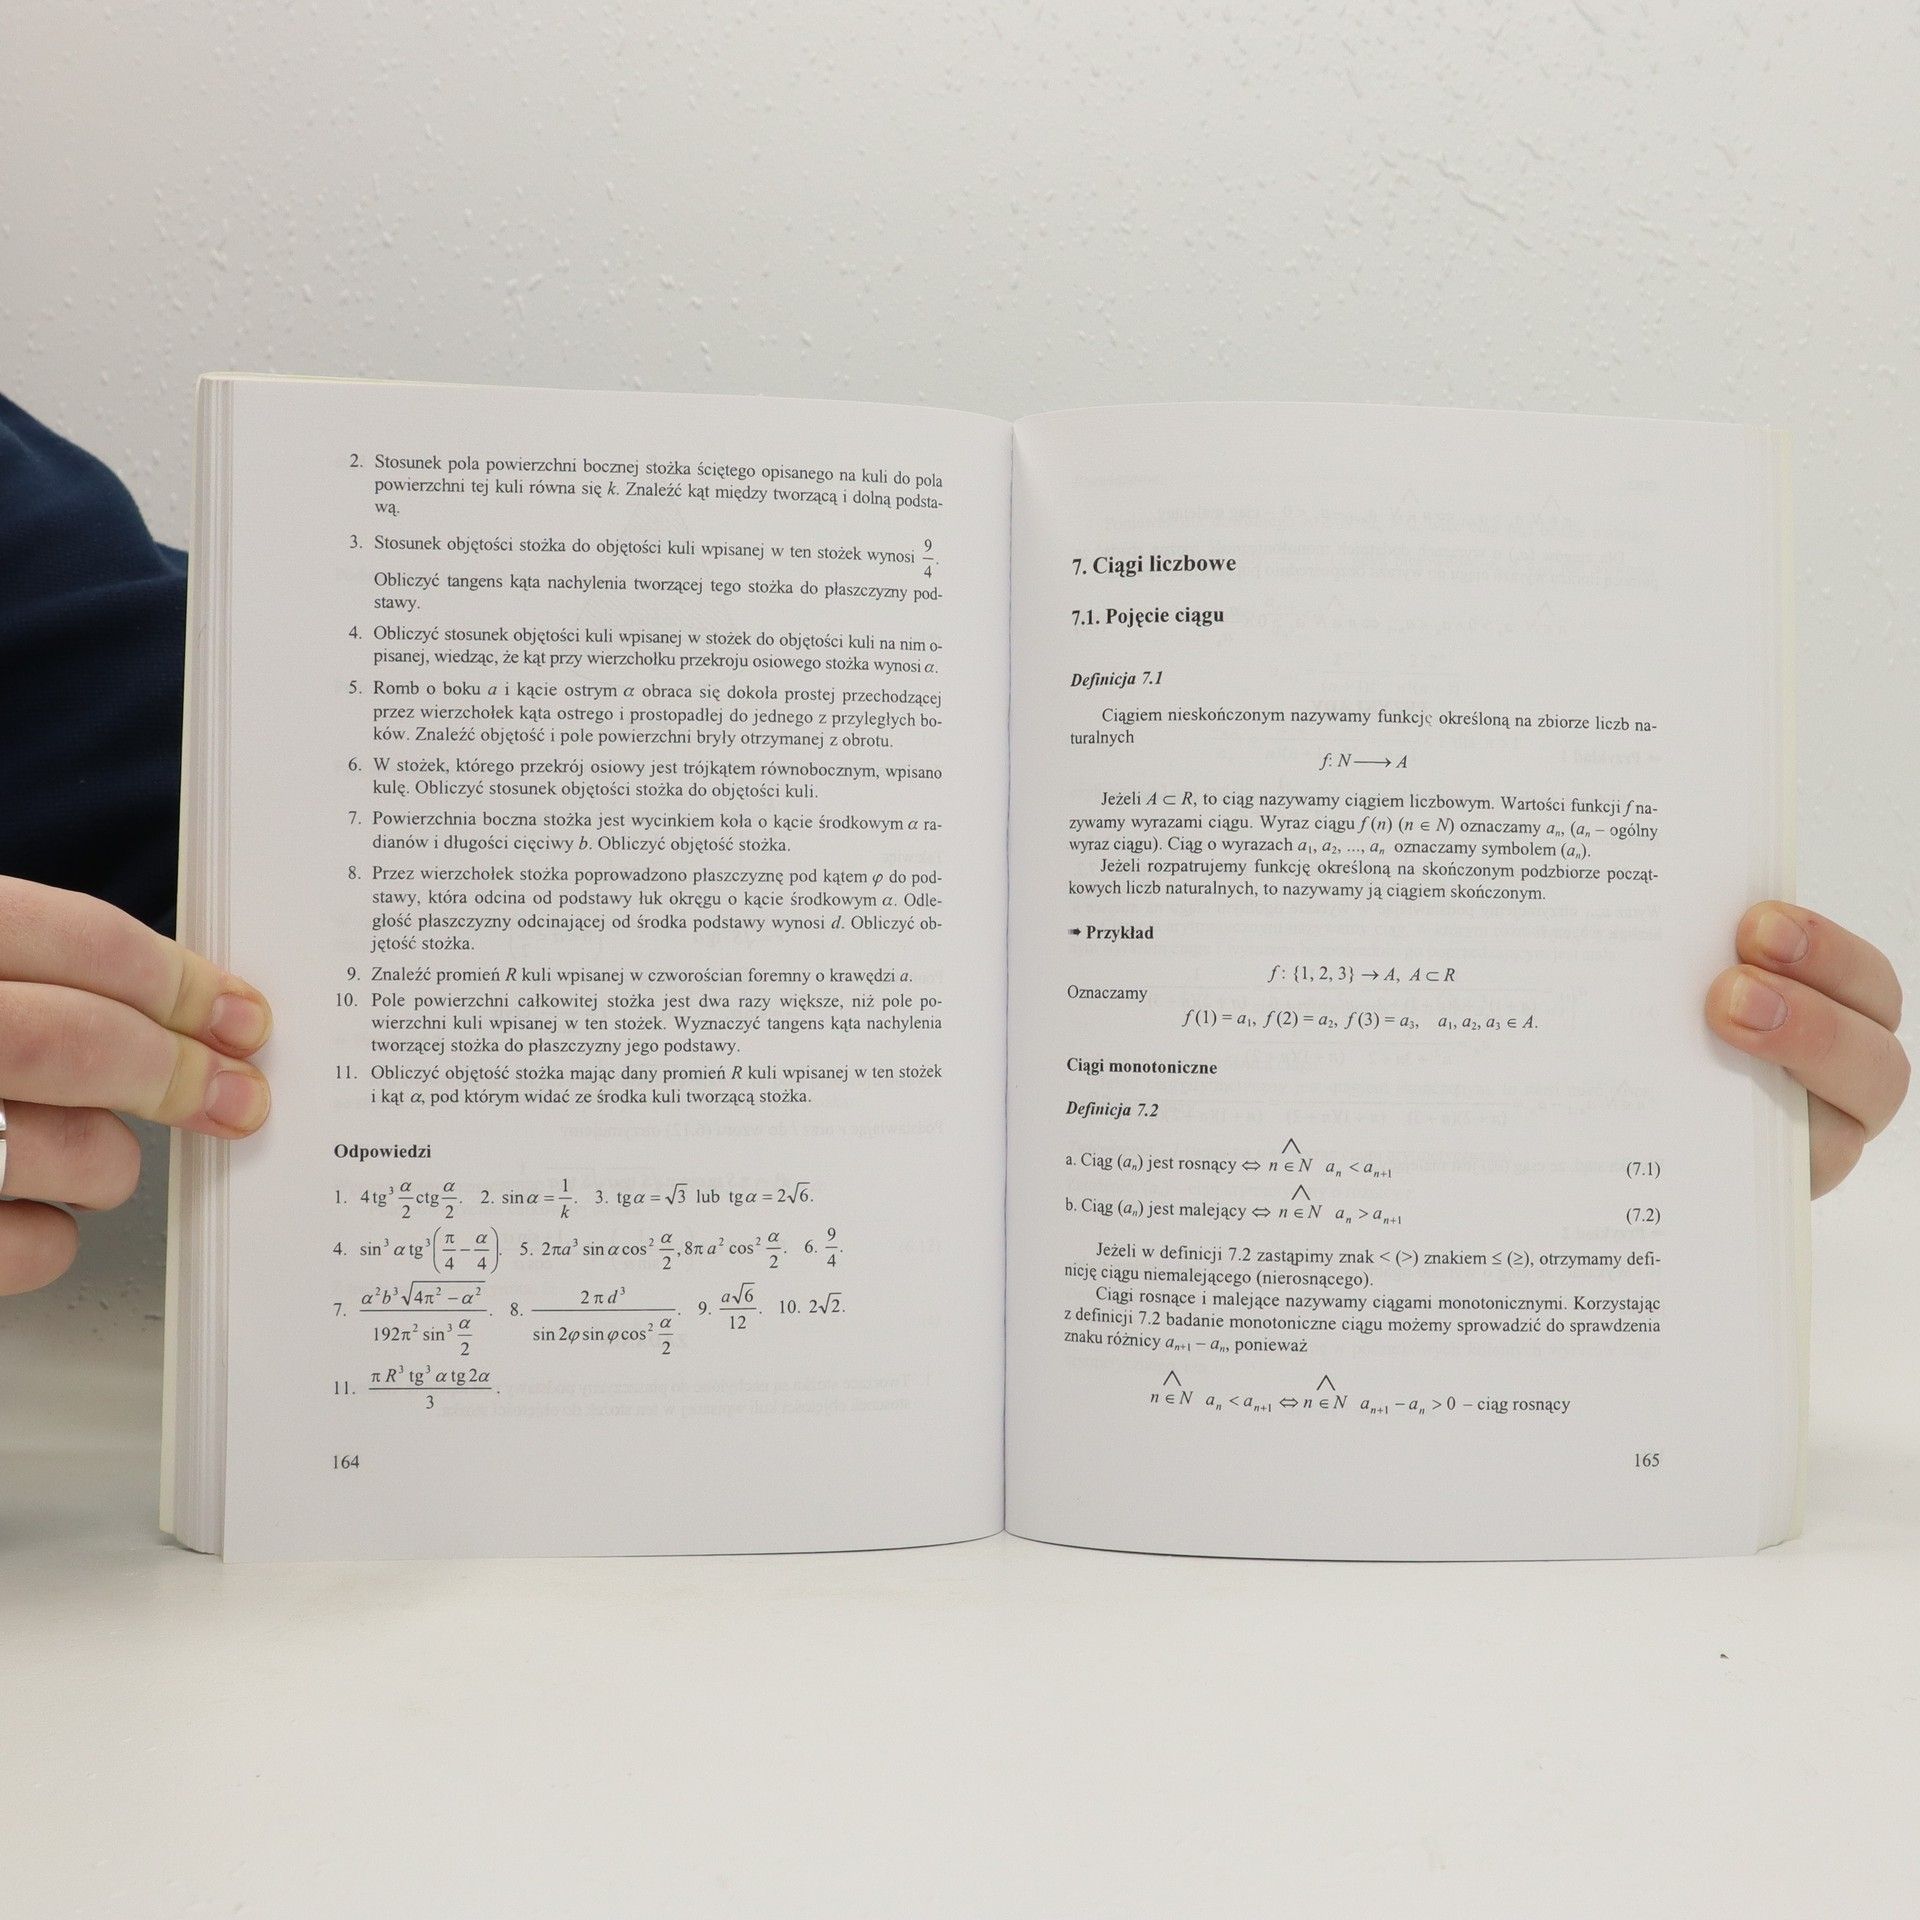 2. Stosunek pola powierzchni bocznej stożka ściętego opisanego na kuli do pola
powierzchni tej kuli równa się k. Znaleźć kąt między tworzącą i dolną podsta-
wą.
3. Stosunek objętości stożka do objętości kuli wpisanej w ten stożek wynosi 9/4.
Obliczyć tangens kąta nachylenia tworzącej tego stożka do płaszczyzny pod-
stawy.
4. Obliczyć stosunek objętości kuli wpisanej w stożek do objętości kuli na nim o-
pisanej, wiedząc, że kąt przy wierzchołku przekroju osiowego stożka wynosi α.
5. Romb o boku a i kącie ostrym α obraca się dokoła prostej przechodzącej
przez wierzchołek kąta ostrego i prostopadłej do jednego z przyległych bo-
ków. Znaleźć objętość i pole powierzchni bryły otrzymanej z obrotu.
6. W stożek, którego przekrój osiowy jest trójkątem równobocznym, wpisano
kulę. Obliczyć stosunek objętości stożka do objętości kuli.
7. Powierzchnia boczna stożka jest wycinkiem koła o kącie środkowym α ra-
dianów i długości cięciwy b. Obliczyć objętość stożka.
8. Przez wierzchołek stożka poprowadzono płaszczyznę pod kątem φ do pod-
stawy, która odcina od podstawy łuk okręgu o kącie środkowym α. Odle-
głość płaszczyzny odcinającej od środka podstawy wynosi d. Obliczyć ob-
jętość stożka.
9. Znaleźć promień R kuli wpisanej w czworościan foremny o krawędzi a.
10. Pole powierzchni całkowitej stożka jest dwa razy większe, niż pole po-
wierzchni kuli wpisanej w ten stożek. Wyznaczyć tangens kąta nachylenia
tworzącej stożka do płaszczyzny jego podstawy.
11. Obliczyć objętość stożka mając dany promień R kuli wpisanej w ten stożek
i kąt α, pod którym widać ze środka kuli tworzącą stożka.
Odpowiedzi
1. 4tg³ α/2 ctg α/2. 2. sin α = 1/k. 3. tg α = √3 lub tg α = 2√6.
4. sin³ α tg³(π/4 − α/4). 5. 2πa³ sin α cos² α/2, 8π a² cos² α/2. 6. 9/4.
7. α²b³√(4π² − α²) / (192π² sin³ α/2). 8. 2πd³ / (sin 2φ sin φ cos² α/2). 9. a√6/12. 10. 2√2.
11. π R³ tg³ α tg 2α / 3.
164
7. Ciągi liczbowe
7.1. Pojęcie ciągu
Definicja 7.1
Ciągiem nieskończonym nazywamy funkcję określoną na zbiorze liczb na-
turalnych
f: N ⟶ A
Jeżeli A ⊂ R, to ciąg nazywamy ciągiem liczbowym. Wartości funkcji f na-
zywamy wyrazami ciągu. Wyraz ciągu f (n) (n ∈ N) oznaczamy aₙ, (aₙ – ogólny
wyraz ciągu). Ciąg o wyrazach a₁, a₂, ..., aₙ oznaczamy symbolem (aₙ).
Jeżeli rozpatrujemy funkcję określoną na skończonym podzbiorze począt-
kowych liczb naturalnych, to nazywamy ją ciągiem skończonym.
➠ Przykład
f : {1, 2, 3} → A, A ⊂ R
Oznaczamy
f (1) = a₁, f (2) = a₂, f (3) = a₃, a₁, a₂, a₃ ∈ A.
Ciągi monotoniczne
Definicja 7.2
a. Ciąg (aₙ) jest rosnący ⇔ ⋀ n∈N aₙ < aₙ₊₁ (7.1)
b. Ciąg (aₙ) jest malejący ⇔ ⋀ n∈N aₙ > aₙ₊₁ (7.2)
Jeżeli w definicji 7.2 zastąpimy znak < (>) znakiem ≤ (≥), otrzymamy defi-
nicję ciągu niemalejącego (nierosnącego).
Ciągi rosnące i malejące nazywamy ciągami monotonicznymi. Korzystając
z definicji 7.2 badanie monotoniczne ciągu możemy sprowadzić do sprawdzenia
znaku różnicy aₙ₊₁ – aₙ, ponieważ
⋀ n∈N aₙ < aₙ₊₁ ⇔ ⋀ n∈N aₙ₊₁ − aₙ > 0 – ciąg rosnący
165